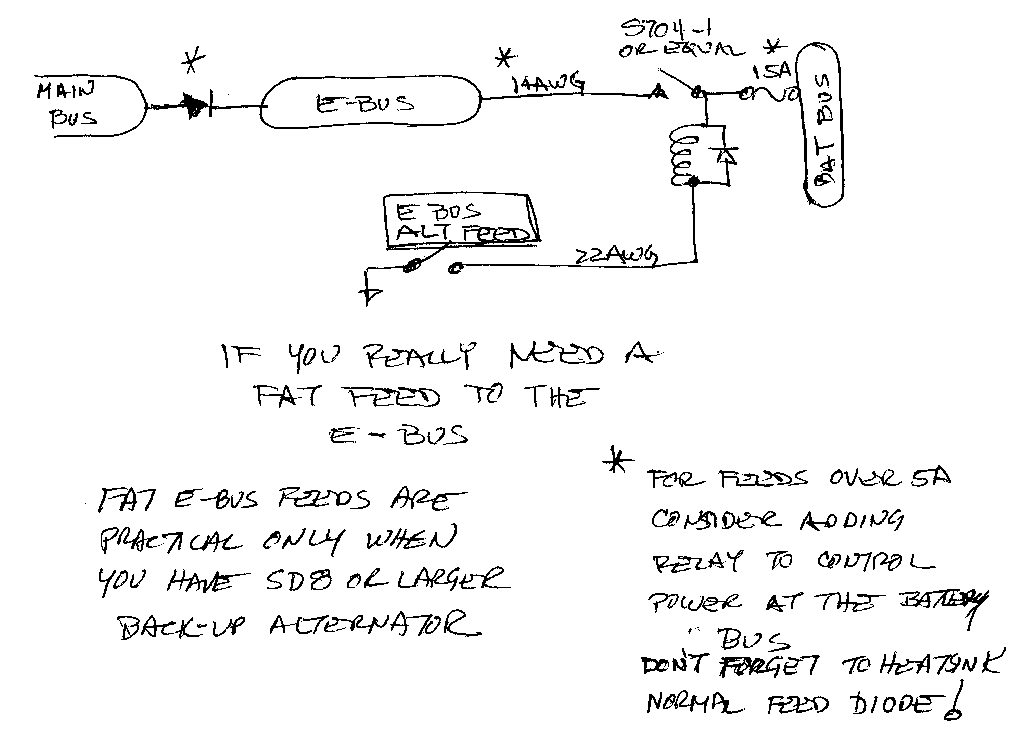 S704-1
OR EQUAL *
* * 15A
MAIN
BUS
E-BUS
14AWG
BAT BUS
E BUS
ALT FEED
22AWG
IF YOU REALLY NEED A
FAT FEED TO THE
E-BUS
FAT E-BUS FEEDS ARE
PRACTICAL ONLY WHEN
YOU HAVE SD8 OR LARGER
BACK-UP ALTERNATOR
* FOR FEEDS OVER 5A
CONSIDER ADDING
RELAY TO CONTROL
POWER AT THE BATTERY
BUS
DON'T FORGET TO HEATSINK
NORMAL FEED DIODE!